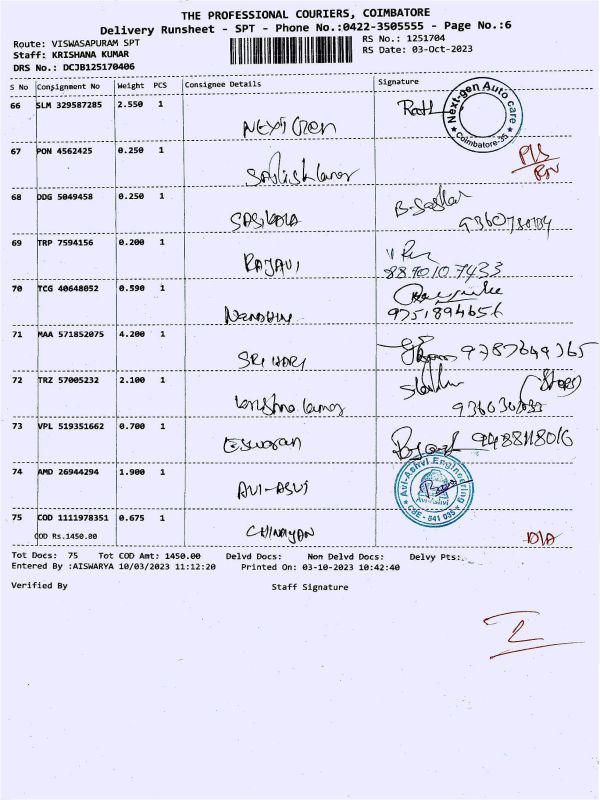 THE PROFESSIONAL COURIERS, COIMBATORE
Delivery Runsheet - SPT - Phone No.:0422-3505555 - Page No.:6
Route: VISWASAPURAM SPT
RS No.: 1251704
Staff: KRISHANA KUMAR
RS Date: 03-Oct-2023
DRS No.: DCJB125170406
S No Consignment No Weight PCS Consignee Details Signature
66 SLM 329587285 2.550 1
NEXT Gen
Next-gen Auto care
Coimbatore-35
67 PON 4562425 0.250 1
68 DDG 5049458 0.250 1
SASIKALA
69 TRP 7594156 0.200 1
RAJAVI
8870107433
70 TCG 40648052 0.590 1
NANDHINI
9751894656
71 MAA 571852075 4.200 1
SRI HARI
9787649365
72 TRZ 57005232 2.100 1
krishna kumar
73 VPL 519351662 0.700 1
Eswaran
74 AMD 26944294 1.900 1
AVI-ASVI
Avi-Ashvi Engineering
CBE - 641 035
75 COD 1111978351 0.675 1
CHINAYAN
COD Rs.1450.00
D/A
Tot Docs: 75 Tot COD Amt: 1450.00 Delvd Docs: Non Delvd Docs: Delvy Pts:
Entered By :AISWARYA 10/03/2023 11:12:20 Printed On: 03-10-2023 10:42:40
Verified By Staff Signature